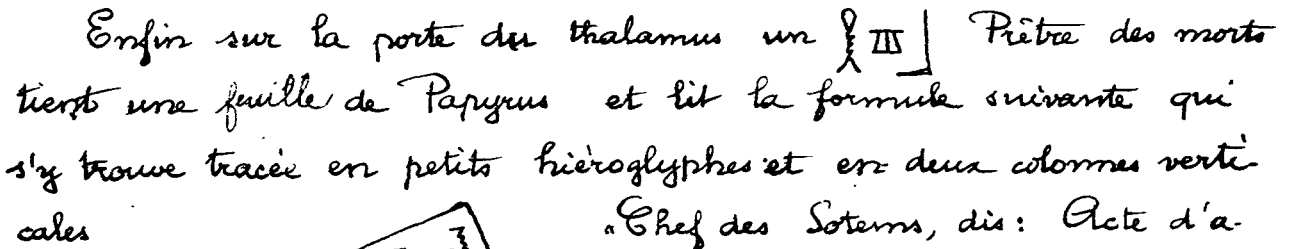 Enfin sur la porte du thalamus un Prêtre des morts
tient une feuille de Papyrus et lit la formule suivante qui
s'y trouve tracée en petits hiéroglyphes et en deux colonnes verti-
cales "Chef des Sotems, dis: Acte d'a-